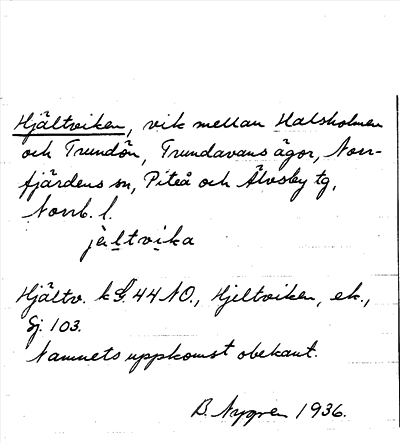 Hjältviken, vik mellan Halsholmen
och Trundön, Trundavans ägor, Norr-
fjärdens sn, Piteå och Älvsby tg,
Norrb. l.
jèltvika
Hjältv. k S. 44 NO., Hjeltviken, ek.,
Sj. 103.
Namnets uppkomst obekant.
B. Nygren 1936.